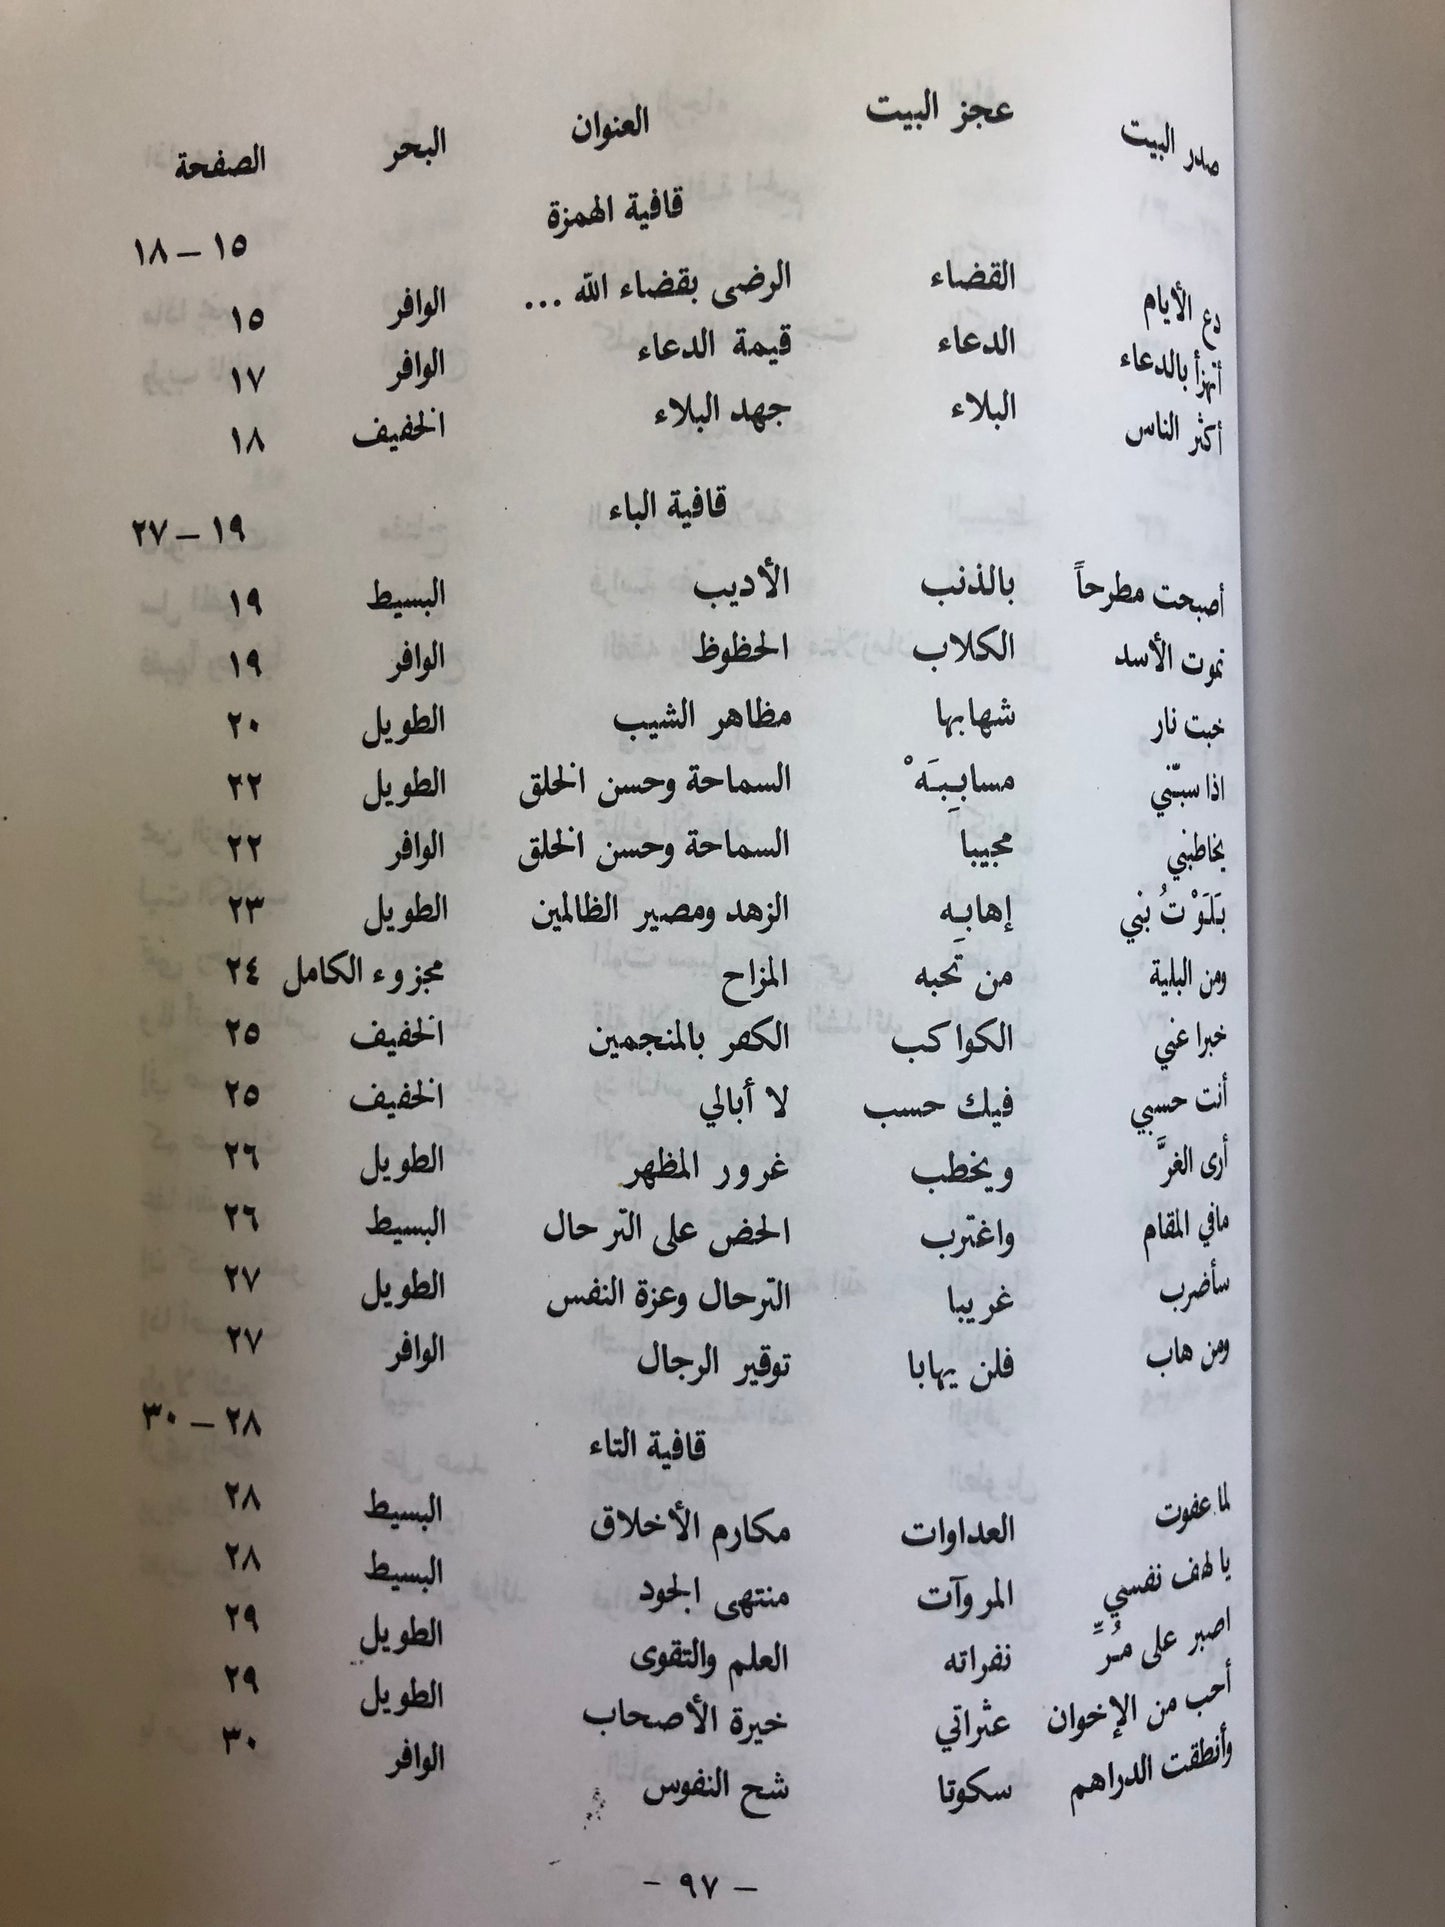 صدر البيت عجز البيت العنوان البحر الصفحة
قافية الهمزة ١٥ – ١٨
دع الأيام القضاء الرضى بقضاء الله ... الوافر ١٥
أتهزأ بالدعاء الدعاء قيمة الدعاء الوافر ١٧
أكثر الناس البلاء جهد البلاء الخفيف ١٨
قافية الباء ١٩ – ٢٧
أصبحت مطرحاً بالذنب الأديب البسيط ١٩
تموت الأسد الكلاب الحظوظ الوافر ١٩
خبت نار شهابها مظاهر الشيب الطويل ٢٠
اذا سبّني مسابِبَهْ السماحة وحسن الخلق الطويل ٢٢
يخاطبني مجيبا السماحة وحسن الخلق الوافر ٢٢
بَلَوْتُ بني إهابِه الزهد ومصير الظالمين الطويل ٢٣
ومن البلية من تحبه المزاح مجزوء الكامل ٢٤
خبرا عني الكواكب الكفر بالمنجمين الخفيف ٢٥
أنت حسبي فيك حسب لا أبالي الخفيف ٢٥
أرى الغرَّ ويخطب غرور المظهر الطويل ٢٦
مافي المقام واغترب الحض على الترحال البسيط ٢٦
سأضرب غريبا الترحال وعزة النفس الطويل ٢٧
ومن هاب فلن يهابا توقير الرجال الوافر ٢٧
قافية التاء ٢٨ – ٣٠
لما عفوت العداوات مكارم الأخلاق البسيط ٢٨
يا لهف نفسي المروآت منتهى الجود البسيط ٢٨
اصبر على مُرِّ نفراته العلم والتقوى الطويل ٢٩
أحب من الإخوان عثراتي خيرة الأصحاب الطويل ٢٩
وأنطقت الدراهم سكوتا شح النفوس الوافر ٣٠
– ٩٧ –